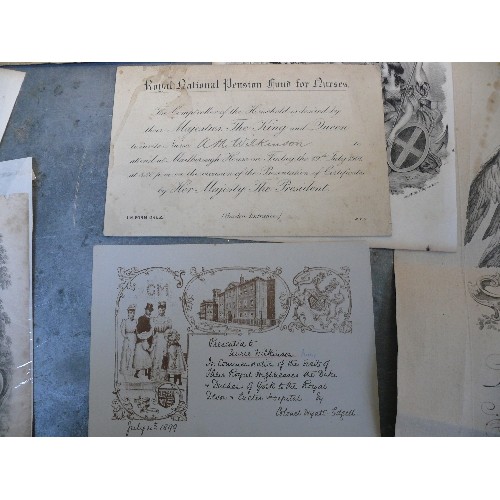 Royal National Pension Fund for Nurses.
The Comptroller of the Household is desired by
their Majesties The King and Queen
to invite Nurse A M Wilkinson to
attend at Marlborough House on Friday the
at p.m. on the occasion of the Presentation of Certificates
by Her Majesty The President.
GM
Presented to
Nurse Wilkinson
In Commemoration of the Visit of
Their Royal Highnesses the Duke
& Duchess of York to the Royal
Devon & Exeter Hospital by
Colonel Wyatt Edgell
July 1899